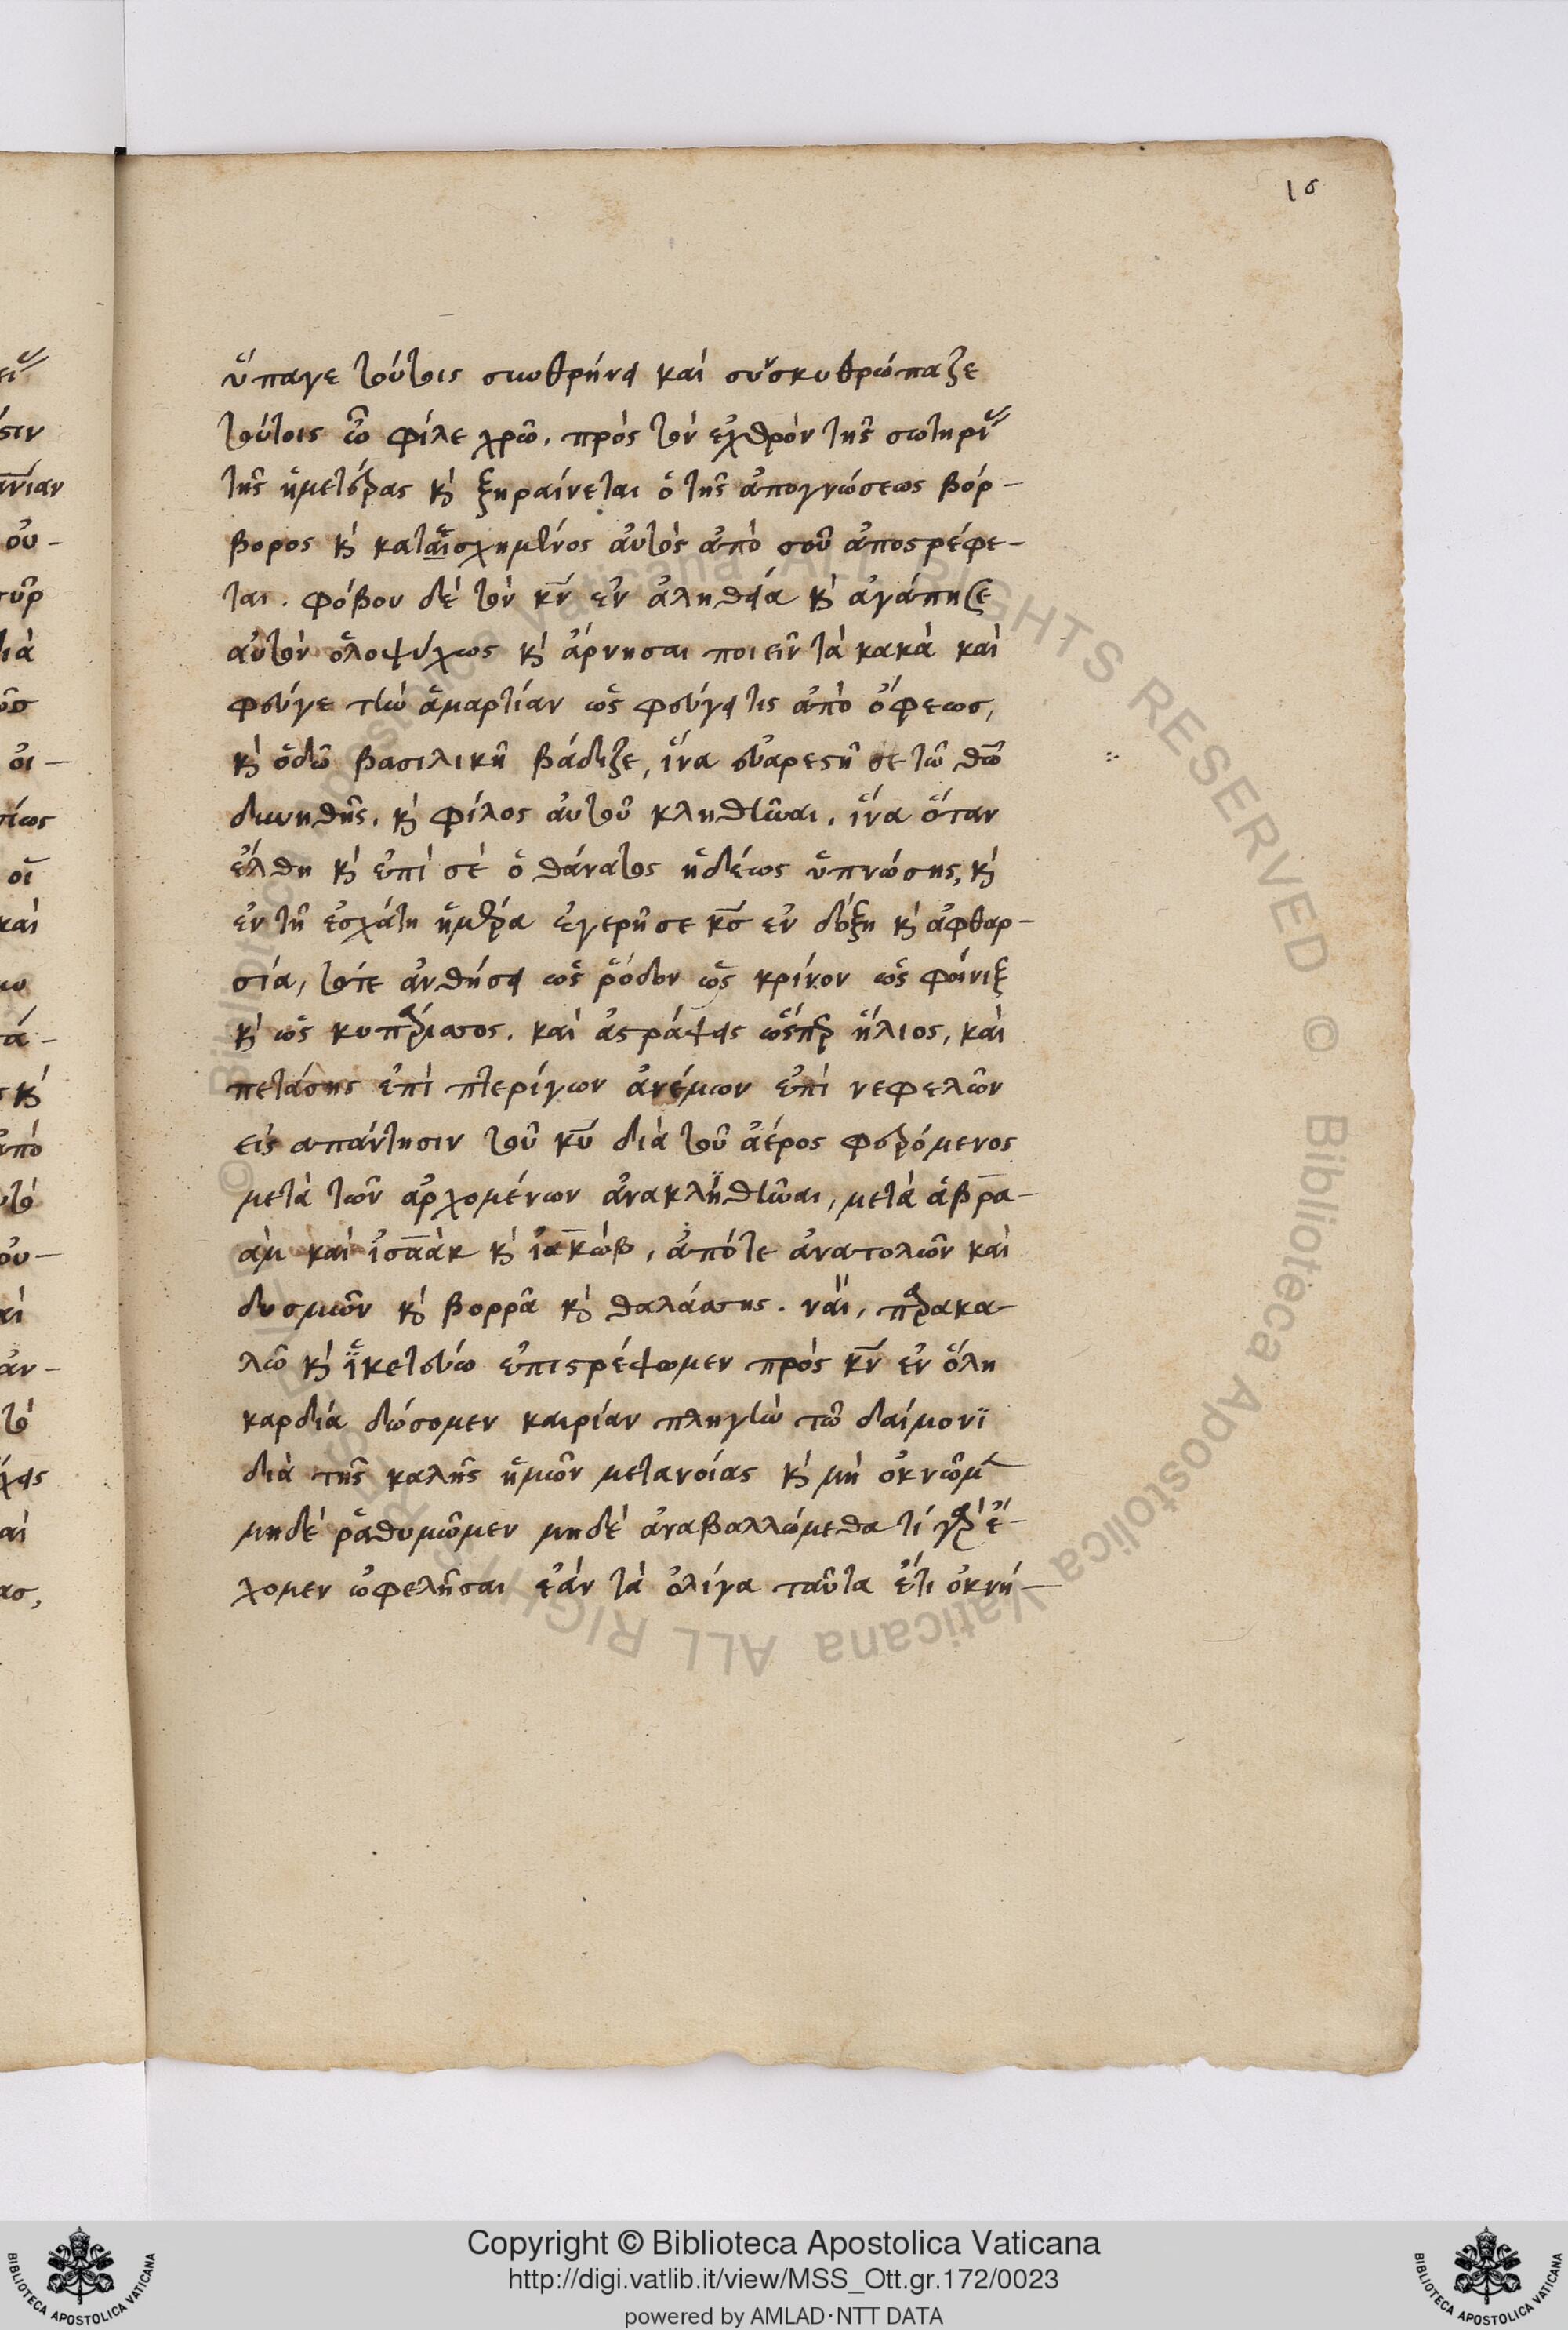 16
ὕπαγε τούτοις συνθρήνει καὶ συσκυθρώπαζε
τούτοις ὦ φίλε χρῶ. πρὸς τὸν ἐχθρὸν τῆς σωτηρί
τῆς ἡμετέρας κ̀ ξηραίνεται ὁ τῆς ἀπογνώσεως βόρ-
βορος κ̀ καταισχημένος αὐτὸς ἀπὸ σοῦ ἀποστρέφε-
ται. φόβου δὲ τὸν κν̅ ἐν ἀληθεία κ̀ ἀγάπησε
αὐτὸν ὁλοψύχως κ̀ ἄρνησαι ποιεῖν τὰ κακὰ καὶ
φεύγε τὴν ἁμαρτίαν ὡς φεύγει τις ἀπὸ ὄφεως,
κ̀ ὁδῶ βασιλικῆ βάδιζε, ἵνα εὐαρεστῆσε τῶ θω̅
δυνηθῆς. κ̀ φίλος αὐτοῦ κληθῆναι. ἵνα ὅταν
ἔλθη κ̀ ἐπὶ σὲ ὁ θάνατος ἡδέως ὑπνώσης, κ̀
ἐν τῆ ἐσχάτη ἡμέρα ἐγερῆ σε κς̅ ἐν δόξη κ̀ ἀφθαρ-
σία, τότε ἀνθήσει ὡς ῥόδον ὡς κρίνον ὡς φοίνιξ
κ̀ ὡς κυπάρισσος. καὶ ἀστράψεις ὥσπερ ἥλιος, καὶ
πετάσης ἐπὶ πτερίγων ἀνέμων ἐπὶ νεφελῶν
εἰς απάντησιν τοῦ κυ̅ διὰ τοῦ ἀέρος φερόμενος
μετὰ τῶν ἀρχομένων ἀνακληθῆναι, μετὰ ἁβρα-
ὰμ καὶ ἰσαὰκ κ̀ ἰακώβ, ἀπότε ἀνατολῶν καὶ
δυσμῶν κ̀ βορρᾶ κ̀ θαλάσσης. ναὶ, παρακα-
λῶ κ̀ ἱκετεύω ἐπιστρέψωμεν πρὸς κν̅ ἐν ὅλη
καρδία δώσομεν καιρίαν πληγὴν τῶ δαίμονϊ
διὰ τῆς καλῆς ἡμῶν μετανοίας κ̀ μὴ ὀκνῶμ
μηδὲ ῥαθυμῶμεν μηδὲ ἀναβαλλώμεθα τί γὰρ ἔ-
χομεν ὠφελῆσαι ἐὰν τὰ ὀλίγα ταῦτα ἔτι ὀκνή-
Copyright © Biblioteca Apostolica Vaticana
http://digi.vatlib.it/view/MSS_Ott.gr.172/0023
powered by AMLAD·NTT DATA